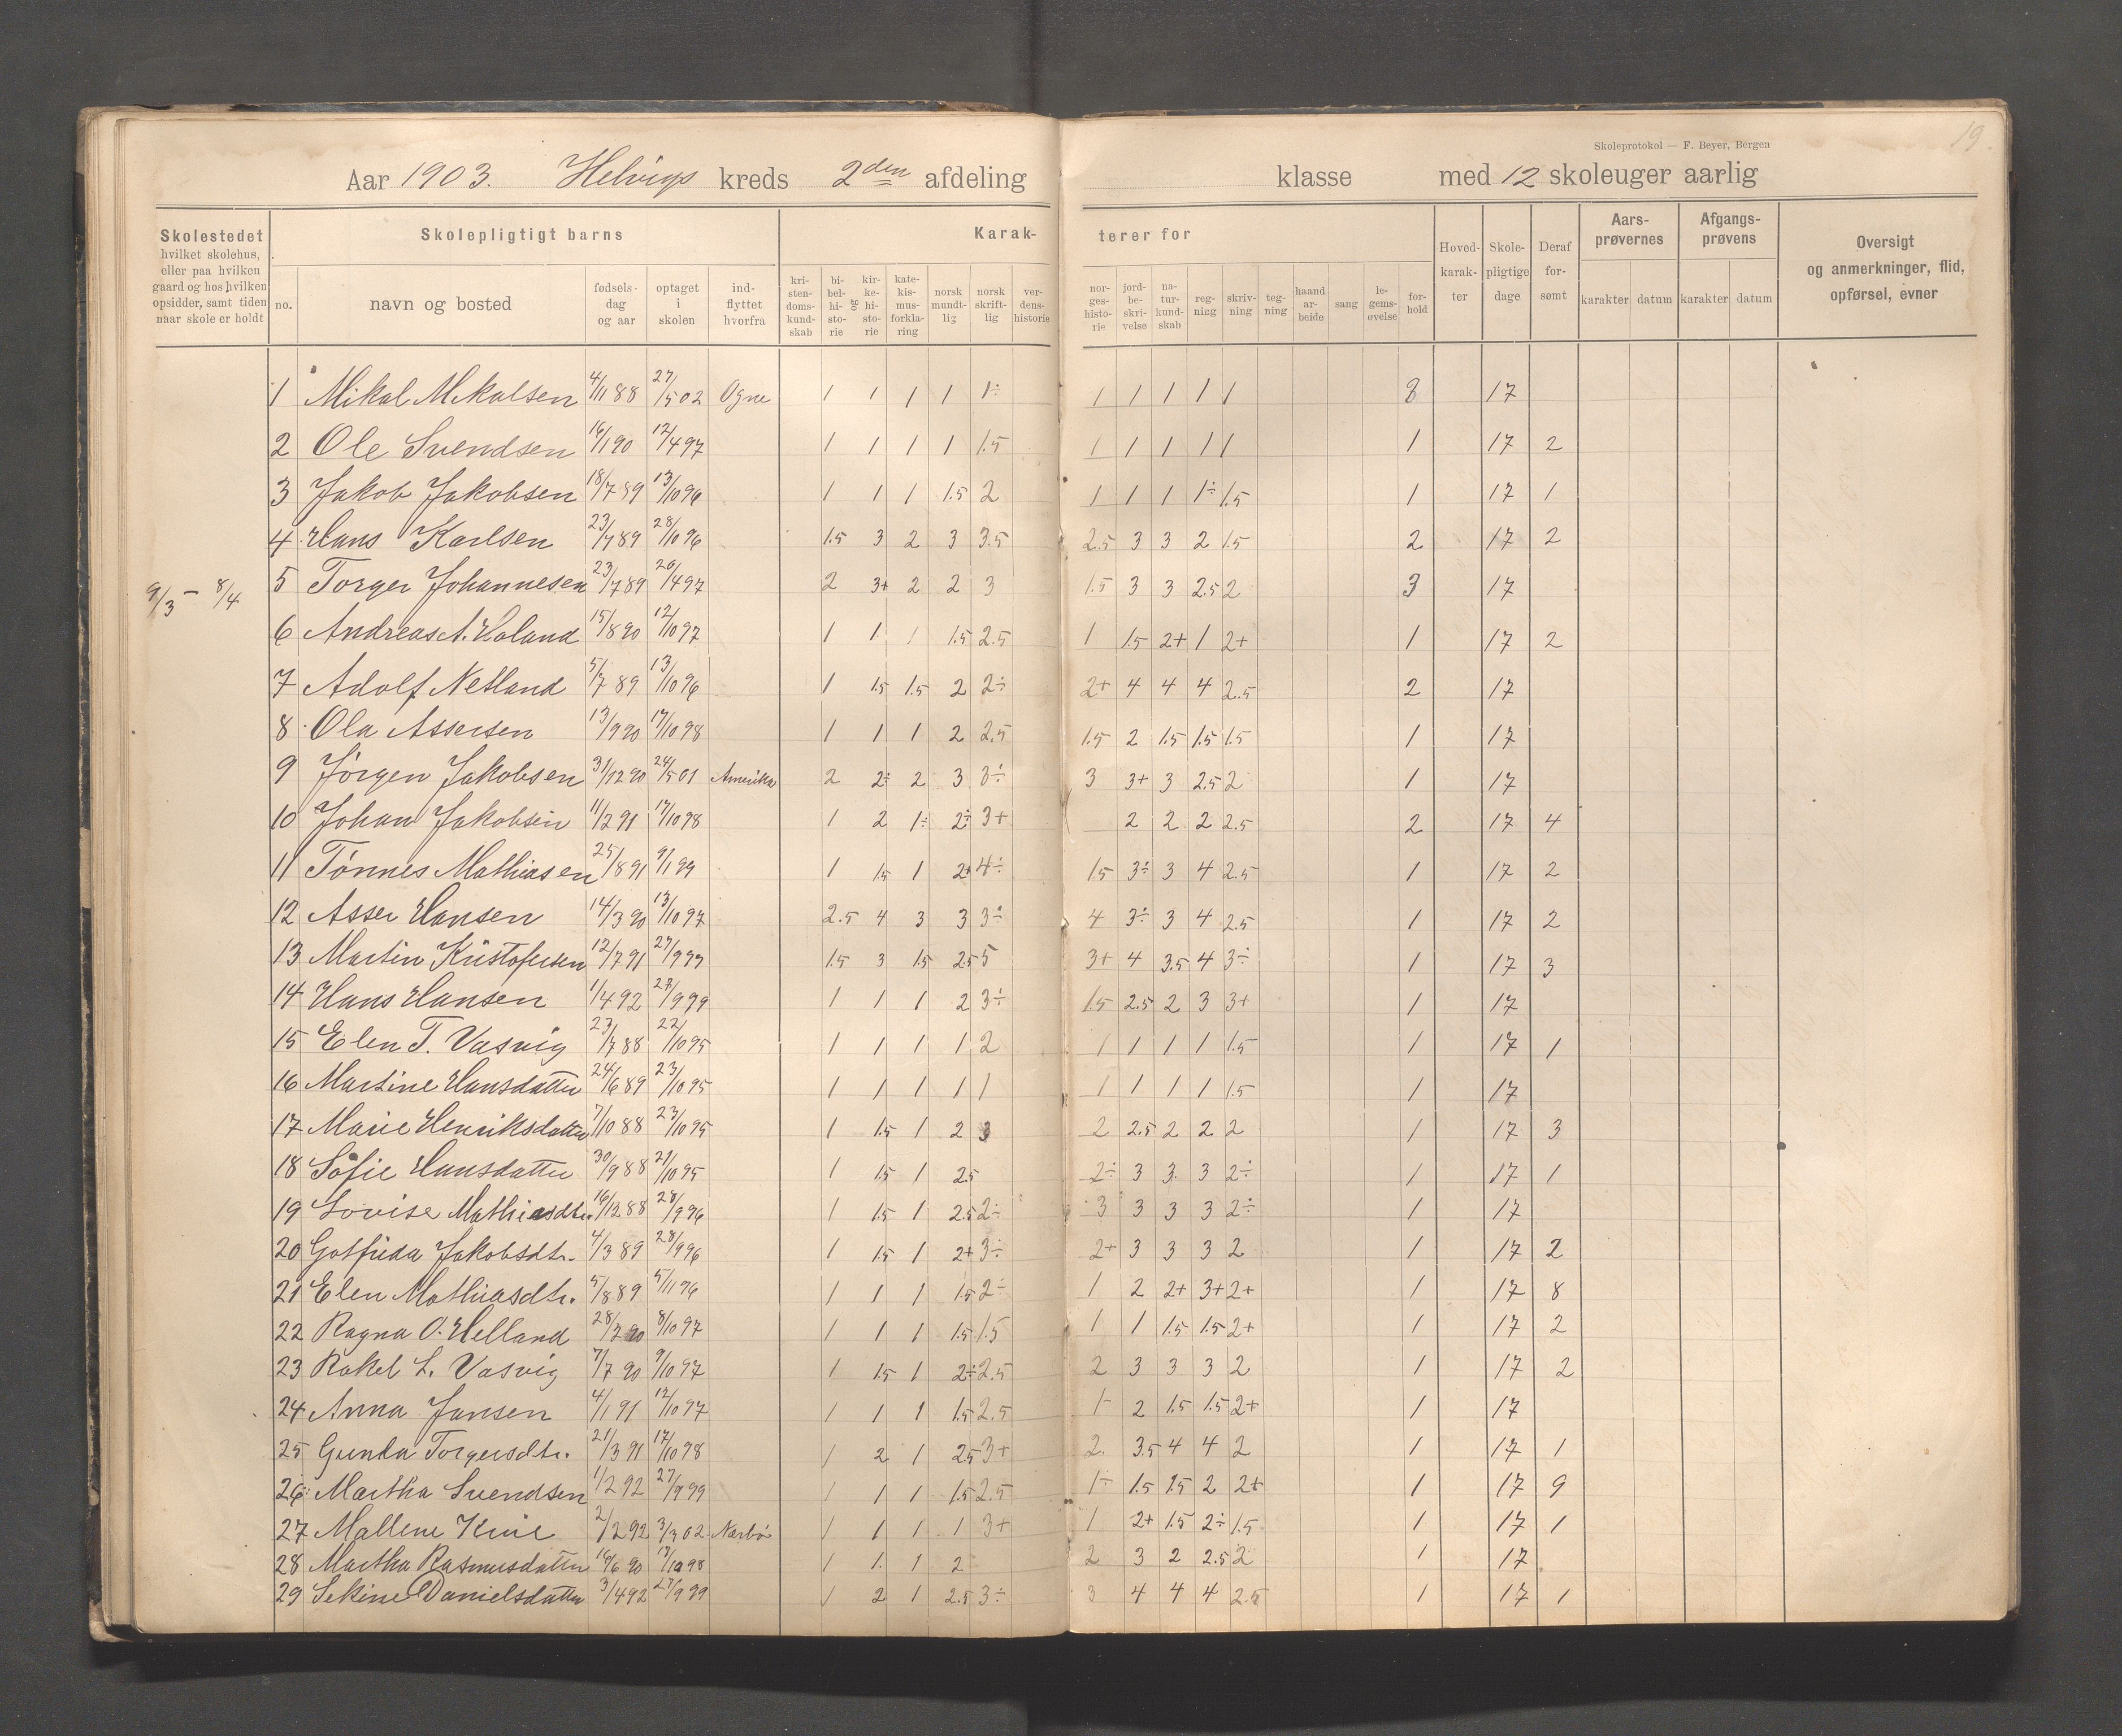 Skoleprotokol — F. Beyer, Bergen
19
Aar 1903. Helvigs kreds 2den afdeling klasse med 12 skoleuger aarlig
Skolestedet hvilket skolehus, eller paa hvilken gaard og hos hvilken opsidder, samt tiden naar skole er holdt
Skolepligtigt barns
Karak- terer for
no. navn og bosted fødsels-dag og aar optaget i skolen ind-flyttet hvorfra kri-sten-doms-kund-skab bi-bel-hi-sto-rie og kir-ke-hi-sto-rie kate-kis-mus-forkla-ring norsk mundt-lig norsk skrift-lig ver-dens-historie nor-ges-histo-rie jord-be-skri-velse na-tur-kund-skab reg-ning skriv-ning teg-ning haand ar-beide sang le-gems-øvelse for-hold Hoved-karak-ter Skole-pligtige dage Deraf for-sømt Aars-prøvernes karakter datum Afgangs-prøvens karakter datum Oversigt og anmerkninger, flid, opførsel, evner
1 Mikal Mikalsen 4/11 88 27/5 02 Ogne 1 1 1 1 1÷ 1 1 1 1 1 3 17
2 Ole Svendsen 16/1 90 12/4 97 1 1 1 1 1.5 1 1 1 1 1 1 17 2
3 Jakob Jakobsen 18/7 89 13/10 96 1 1 1 1.5 2 1 1 1 1÷ 1.5 1 17 1
4 Hans Karlsen 23/7 89 28/10 96 1.5 3 2 3 3.5 2.5 3 3 2 1.5 2 17 2
9/3 – 8/4
5 Torger Johannesen 23/7 89 20/4 97 2 3+ 2 2 3 1.5 3 3 2.5 2 3 17
6 Andreas A. Holand 15/8 90 12/10 97 1 1 1 1.5 2.5 1 1.5 2+ 1 2+ 1 17 2
7 Adolf Netland 5/7 89 13/10 96 1 1.5 1.5 2 2÷ 2+ 4 4 4 2.5 2 17
8 Ola Assersen 13/9 90 17/10 98 1 1 1 2 2.5 1.5 2 1.5 1.5 1.5 1 17
9 Jørgen Jakobsen 31/12 90 24/5 01 Amerika 2 2÷ 2 3 3÷ 3 3+ 3 2.5 2 1 17
10 Johan Jakobsen 11/2 91 17/10 98 1 2 1÷ 2÷ 3+ 2 2 2 2.5 2 17 4
11 Tønnes Mathiasen 25/8 91 9/1 99 1 1.5 1 2+ 4÷ 1.5 3÷ 3 4 2.5 1 17 2
12 Asser Hansen 14/3 90 13/10 97 2.5 4 3 3 3÷ 4 3÷ 3 4 2.5 1 17 2
13 Martin Kristofersen 12/7 91 27/9 99 1.5 3 1.5 2.5 5 3+ 4 3.5 4 3÷ 1 17 3
14 Hans Hansen 1/4 92 27/9 99 1 1 1 2 3÷ 1.5 2.5 2 3 3+ 1 17
15 Elen T. Vasvig 23/7 88 22/10 95 1 1 1 1 2 1 1 1 1 1.5 1 17 1
16 Martine Hansdatter 24/6 89 23/10 95 1 1 1 1 1 1 1 1 1 1.5 1 17
17 Marie Henriksdatter 7/10 88 23/10 95 1 1.5 1 2 3 2 2.5 2 2 2 1 17 3
18 Sofie Hansdatter 30/9 88 21/10 95 1 1.5 1 2.5 2÷ 3 3 3 2÷ 1 17 1
19 Lovise Mathiasdtr. 16/12 88 28/9 96 1 1.5 1 2.5 2÷ 3 3 3 3 2÷ 1 17
20 Gotfrida Jakobsdtr. 4/3 89 28/9 96 1 1.5 1 2+ 3÷ 2+ 3 3 3 2 1 17 2
21 Elen Mathiasdtr. 5/8 89 5/11 96 1 1 1 1.5 2÷ 1 2 2+ 3+ 2+ 1 17 8
22 Ragna O. Helland 28/2 90 8/10 97 1 1 1 1.5 1.5 1 1 1.5 1.5 2+ 1 17 2
23 Rakel L. Vasvig 7/7 90 9/10 97 1 1.5 1 2÷ 2.5 2 3 3 3 2 1 17 2
24 Anna Jansen 4/1 91 12/10 97 1 1 1 1.5 2.5 1- 2 1.5 1.5 2+ 1 17
25 Gunda Torgersdtr. 21/3 91 17/10 98 1 2 1 2.5 3+ 2. 3.5 4 4 2 1 17 1
26 Martha Svendsen 1/2 92 27/9 99 1 1 1 1.5 2.5 1÷ 1.5 1.5 2 2+ 1 17 9
27 Mallene 2/2 92 3/3 02 Nærbø 1 1 1 1 3+ 1 2+ 1.5 2÷ 1.5 1 17 1
28 Martha Rasmusdatter 16/6 90 17/10 98 1 1. 1 2 2 3 2 2.5 2 1 17
29 Sekine Danielsdatter 3/4 92 27/9 99 1 2 1 2.5 3÷ 3 4 4 4 2.5 1 17 1